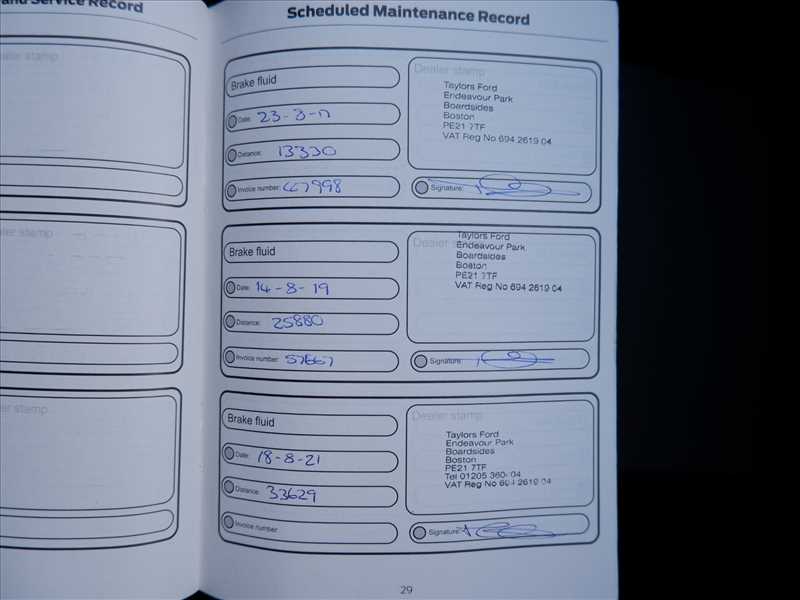 and Service Record
ealer stamp
aler stamp
er stamp
Scheduled Maintenance Record
Brake fluid
Date: 23-8-17
Distance: 13330
Invoice number: 67998
Dealer stamp
Taylors Ford
Endeavour Park
Boardsides
Boston
PE21 7TF
VAT Reg No 694 2619 04
Signature:
Brake fluid
Date: 14-8-19
Distance: 25880
Invoice number:
Dealer
Taylors Ford
Endeavour Park
Boardsides
Boston
PE21 7TF
VAT Reg No 694 2619 04
Signature:
Brake fluid
Date: 18-8-21
Distance: 33629
Invoice number
Dealer stamp
Taylors Ford
Endeavour Park
Boardsides
Boston
PE21 7TF
Tel 01205 360 04
VAT Reg No 694 2619 04
Signature:
29